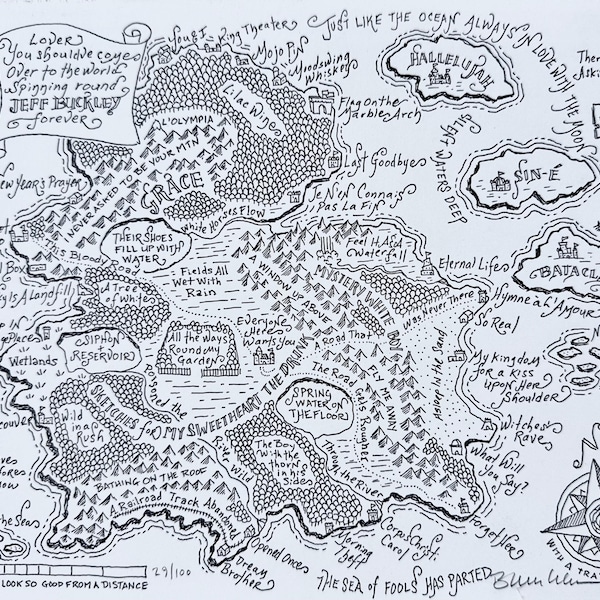 Lover
You should've come
Over to the world
Spinning round
JEFF BUCKLEY
forever
Yougi
King Theater
Mojo Pin
Moodswing
Whiskey
Flag On the
Marble Arch
Last Goodbye
Je N'en Connais
Pas La Fin
JUST LIKE THE OCEAN ALWAYS IN LOVE WITH THE MOON
SILENT WATERS DEEP
HALLELUJAH
SIN-É
BATACLA
Ther
Aski
L'OLYMPIA
Lilac Wine
NEVER ASHED BY YOUR MTN
GRACE
White Horses Flow
New Year's Prayer
THEIR SHOES
FILL UP WITH
WATER
This Blood
Road
Box
Sky Is A Landfill
A Tree
of White
Fields All
Wet With
Rain
Feel It As A
Waterfall
Eternal Life
Hymne à L'Amour
So Real
A WINDOW UP ABOVE
MYSTERY WHITE BOY
Was Never There
Road That
FLY ME AWAY
Asleep in the Sand
My Kingdom
for a kiss
upon Her
Shoulder
Witches'
Rave
What Will
You Say?
Forget Her
Places
Wetlands
SIPHON
RESERVOIR
All the Ways
Round My
Garden
Everyone
Here
Wants You
The Road Gets Rougher
SPRING
WATER ON
THE FLOOR
SKETCHES for MY SWEETHEART THE DRUNK
Wild
in a
Rush
Rope Wild
The Boy
With the
thorn
in his
Side
Through the River
BATHING ON THE ROOF
A Railroad Track Abandoned
Opened Once
Dream
Brother
Morning
Theft
Corpus Christi
Carol
THE SEA of FOOLS HAS PARTED
the Seas
LOOK SO GOOD FROM A DISTANCE
29/100
WITH A TRA